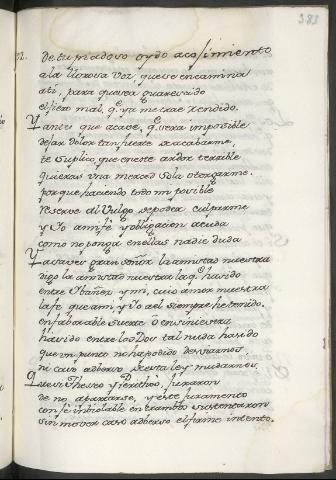 383
72. De tu piadoso oydo acogimiento
a la llorosa voz, que se encamina
a ti, para que sea guarecido
el fiero mal, q̃ ya me trae rendido.
Y antes que acave, q̃ sera imposible
dejar dolor tan fuerte de acabarme,
te suplico, que en este ardor terrible
quieras una merced sola otorgarme.
porque haciendo todo mi posible
reserve al Vulgo de poder culparme
y Yo a mi fe y obligacion acuda
como no ponga en ellas nadie duda
Ya saves gran señor la amistad nuestra
digo la amistad nuestra la q̃ ha sido
entre Ybañez y mi, cuio amor muestra
la fe que a mi, y Yo a el siempre he tenido.
en favorable suerte ò en siniestra
ha sido entre los Dos tal ñuda
que un punto no ha podido desviarnos,
ni caso adverso de esta ley mudarnos.
Que si Theseo y Perithòo, juraron
de no apartarse, y este juramento
con fe inviolable entrambos sustentaron
sin mover caso adverso el firme intento.